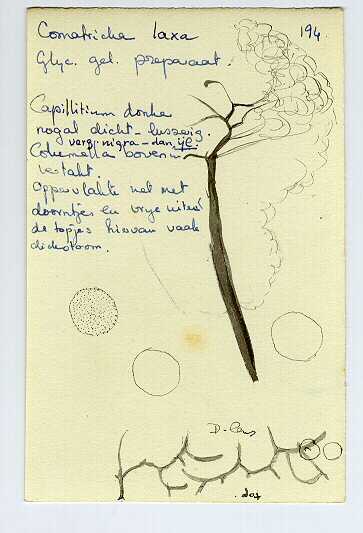 Comatricha laxa
194.
Glyc. gel. preparaat.
Capillitium donker
nogal dicht-lussig.
verg. nigra - dan ijl.
Columella bovenin
vertakt.
Oppervlakte net met
doorntjes en vrije uiteind
de topjes hiervan vaak
dichotoom.
top.